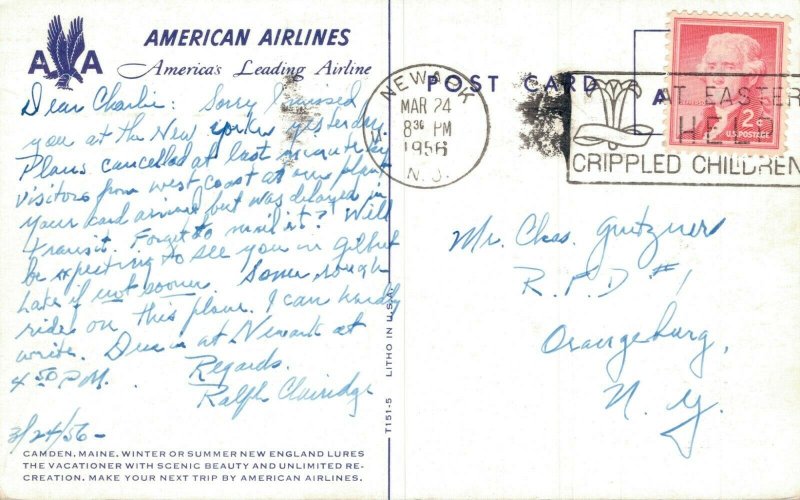 AMERICAN AIRLINES
AA
America's Leading Airline
Dear Charlie: Sorry I missed
you at the New Yorker yesterday.
Plans cancelled at last minute by
visitors from west coast at our plant
your card arrived but was delayed in
transit. Forget to mail it? Will
be expecting to see you in
Lake if not sooner. Some rough
ride on this plane. I can hardly
write. Due in at Newark at
4:50 PM. Regards.
Ralph Clairidge
3/24/56-
CAMDEN, MAINE. WINTER OR SUMMER NEW ENGLAND LURES
THE VACATIONER WITH SCENIC BEAUTY AND UNLIMITED RE-
CREATION. MAKE YOUR NEXT TRIP BY AMERICAN AIRLINES.
T151-5 LITHO IN U.S.A.
POST CARD
NEWARK
MAR 24
8 30 PM
1956
N. J.
AT EASTER
HELP
CRIPPLED CHILDREN
2¢
U.S. POSTAGE
Mr. Chas.
R. F. D #1
Orangeburg,
N. Y.